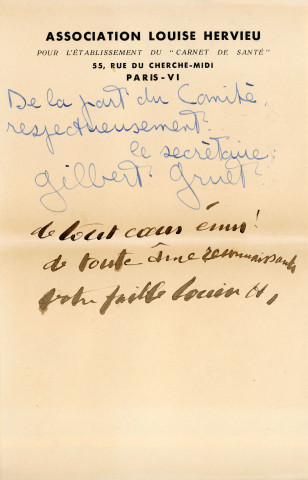 ASSOCIATION LOUISE HERVIEU
POUR L'ÉTABLISSEMENT DU "CARNET DE SANTÉ"
55, RUE DU CHERCHE-MIDI
PARIS-VI
De la part du Comité,
respectueusement
le secrétaire:
Gilbert Gruet
de tout cœur émus!
de toute âme reconnaissante
votre faible Louise H,